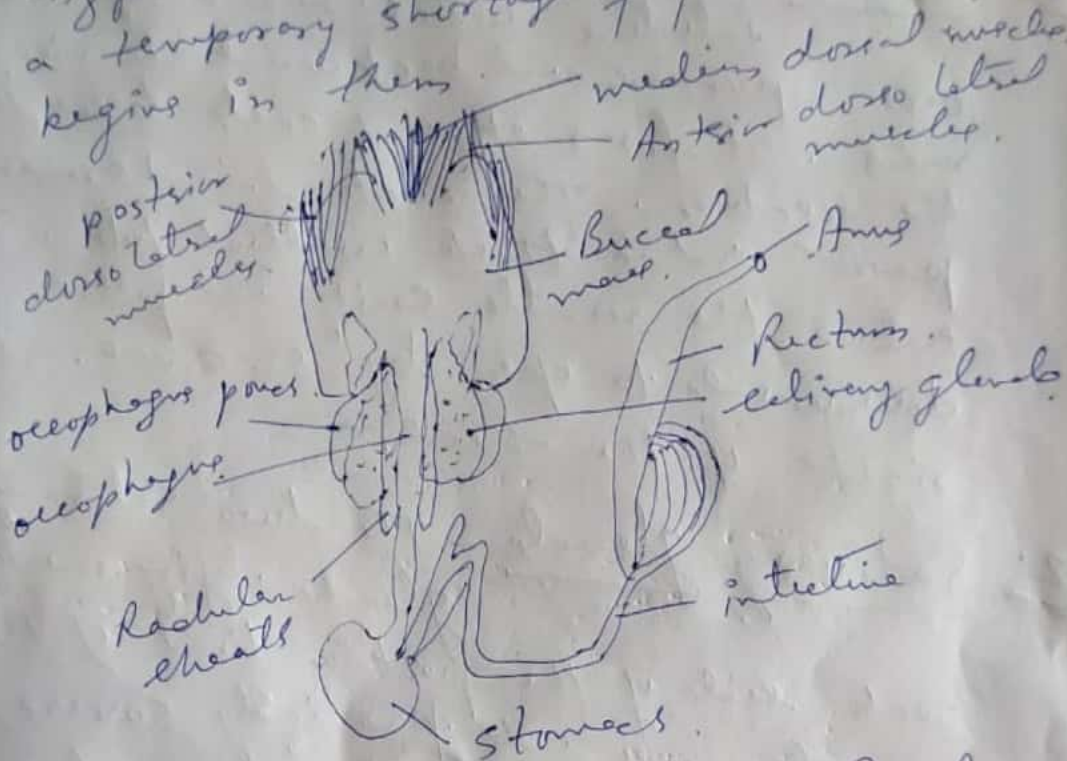 a temporary
begins in them
median dorsal muscles
Anterior dorso lateral
muscles.
posterior
dorso lateral
muscles.
Buccal
mass.
Anus
Rectum.
salivary glands
oesophagus
oesophagus
Radular
sheath
intestine
stomach